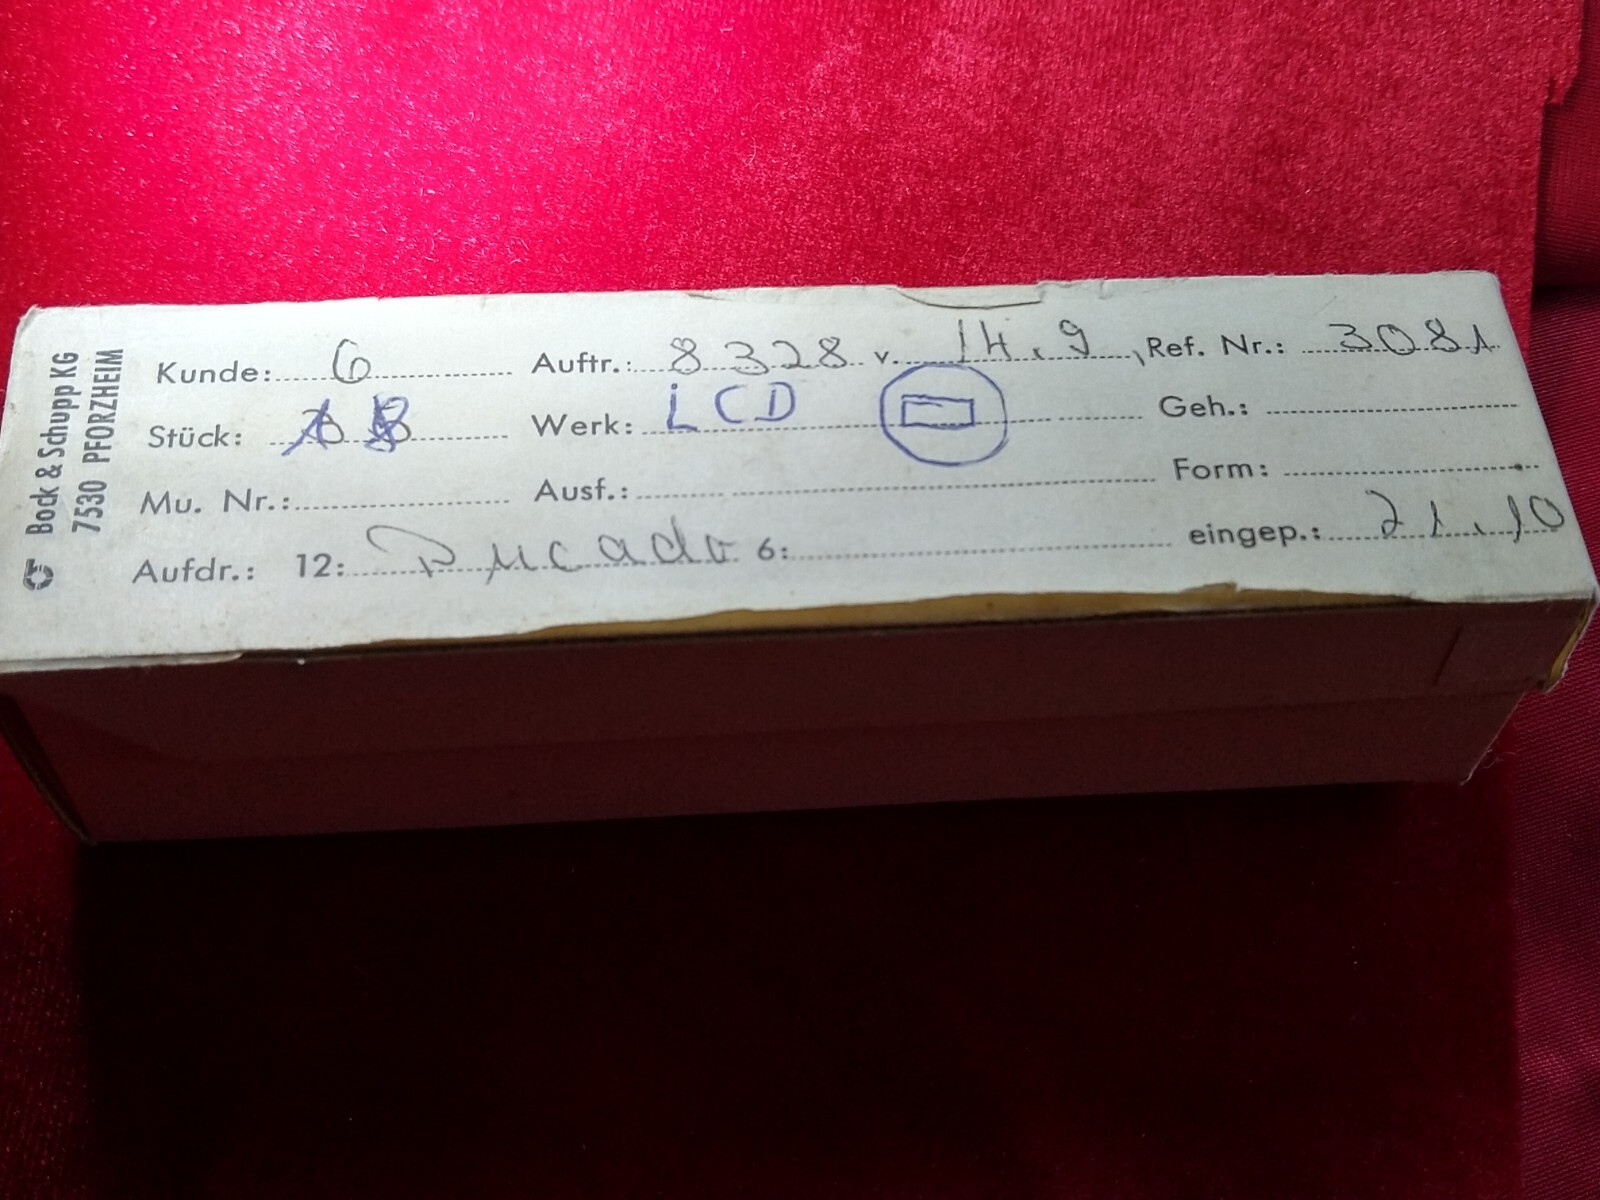 Bock & Schupp KG
7530 PFORZHEIM
Kunde: 6 Auftr.: 8328 v. 14.9, Ref. Nr.: 3081
Stück: Werk: LCD Geh.:
Mu. Nr.: Ausf.: Form:
Aufdr.: 12: Pucado 6: eingep.: 21.10